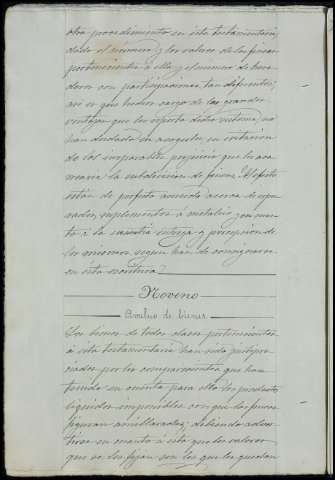 otro procedimiento en esta testamentaría,
dado el número y los valores de las fincas
pertenecientes a ella y el número de here-
deros con participaciones tan diferentes;
así es que hechos cargo de las grandes
ventajas que les reporta dicho sistema, no
han dudado en acogerlo, en evitación
de los irreparables perjuicios que les aca-
rrearía la subdivisión de fincas. Al efecto
están de perfecto acuerdo acerca de
a metálico en cuan-
to a la cuantía y percepción de
los mismos según han de consignarse
en esta escritura.
Noveno
Avaluo de bienes
Los bienes de todas clases pertenecientes
á esta testamentaría han sido justipre-
ciados por los comparecientes que han
tenido en cuenta para ello los productos
líquidos imponibles con que las fincas
figuran amillaradas; debiendo adver-
tirse en cuanto á esto que los valores
que se les fijan son los que les quedan